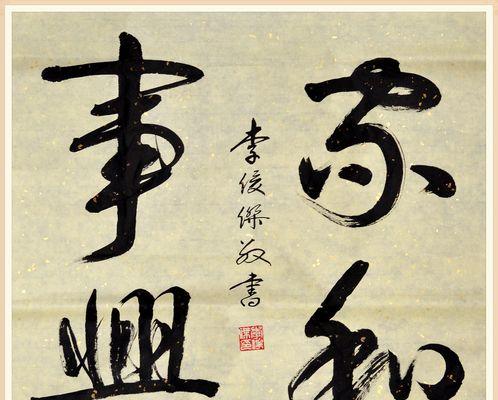 家和
事興
李俊傑敬書